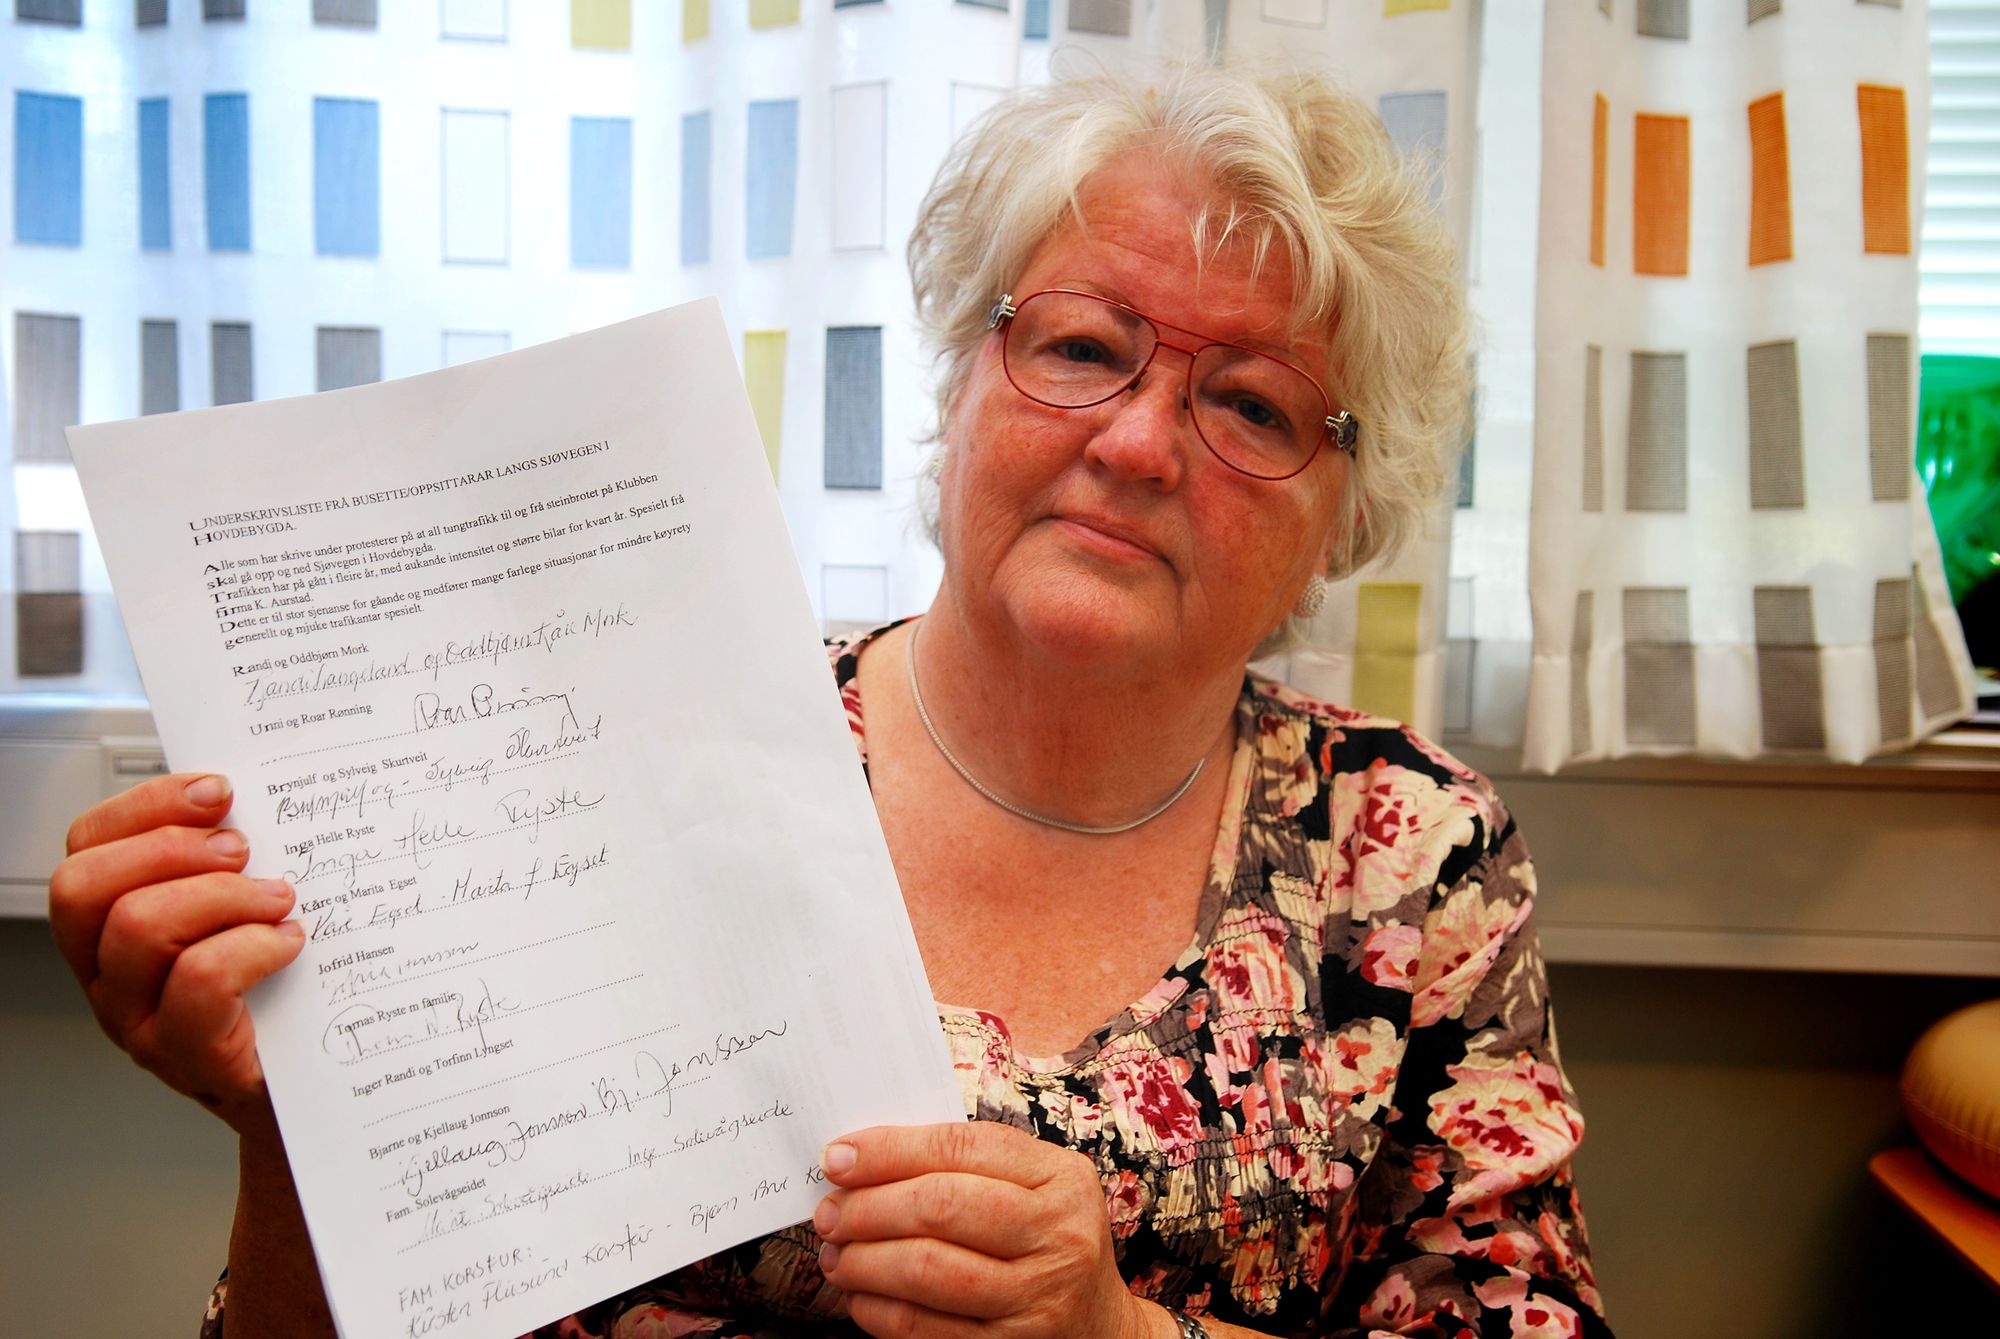 UNDERSKRIVSLISTE FRÅ BUSETTE/OPPSITTARAR LANGS SJØVEGEN I
HOVDEBYGDA.
Alle som har skrive under protesterer på at all tungtrafikk til og frå steinbrotet på Klubben
skal gå opp og ned Sjøvegen i Hovdebygda.
Trafikken har på gått i fleire år, med aukande intensitet og større bilar for kvart år. Spesielt frå
firma K. Aurstad.
Dette er til stor sjenanse for gåande og medfører mange farlege situasjonar for mindre køyrety
generelt og mjuke trafikantar spesielt.
Randi og Oddbjørn Mork
Randi Langeland og Oddbjørn Kåre Mork
Unni og Roar Rønning
Roar Rønning
Brynjulf og Sylveig Skurtveit
Brynjulf og Sylveig Skurtveit
Inga Helle Ryste
Inga Helle Ryste
Kåre og Marita Egset
Kåre Egset Marita F Egset
Jofrid Hansen
Jofrid Hansen
Tomas Ryste m familie
Ryste
Inger Randi og Torfinn Lyngset
Bjarne og Kjellaug Jonnson
Kjellaug Jonnson Bj. Jonsson
Fam. Solevågseidet
Solevågseide Inge Solevågseide
FAM. KORSFUR:
Kirsten Korsfur - Bjørn Arve Ko